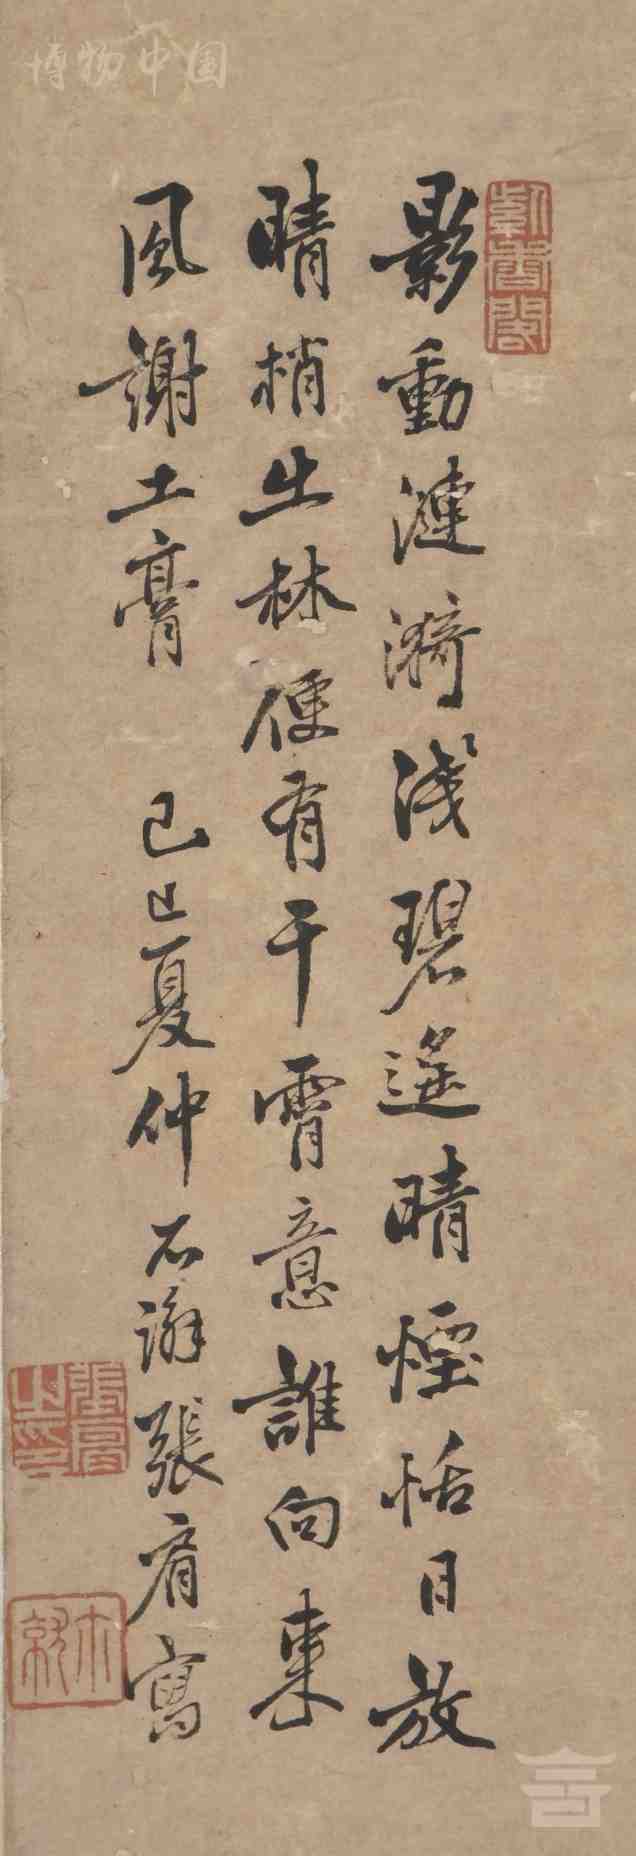 博物中国
影動漣漪浅碧遥晴煙恬日放
晴梢生林便有干霄意誰向東
風謝土膏
己巳夏仲石谢張宥寫